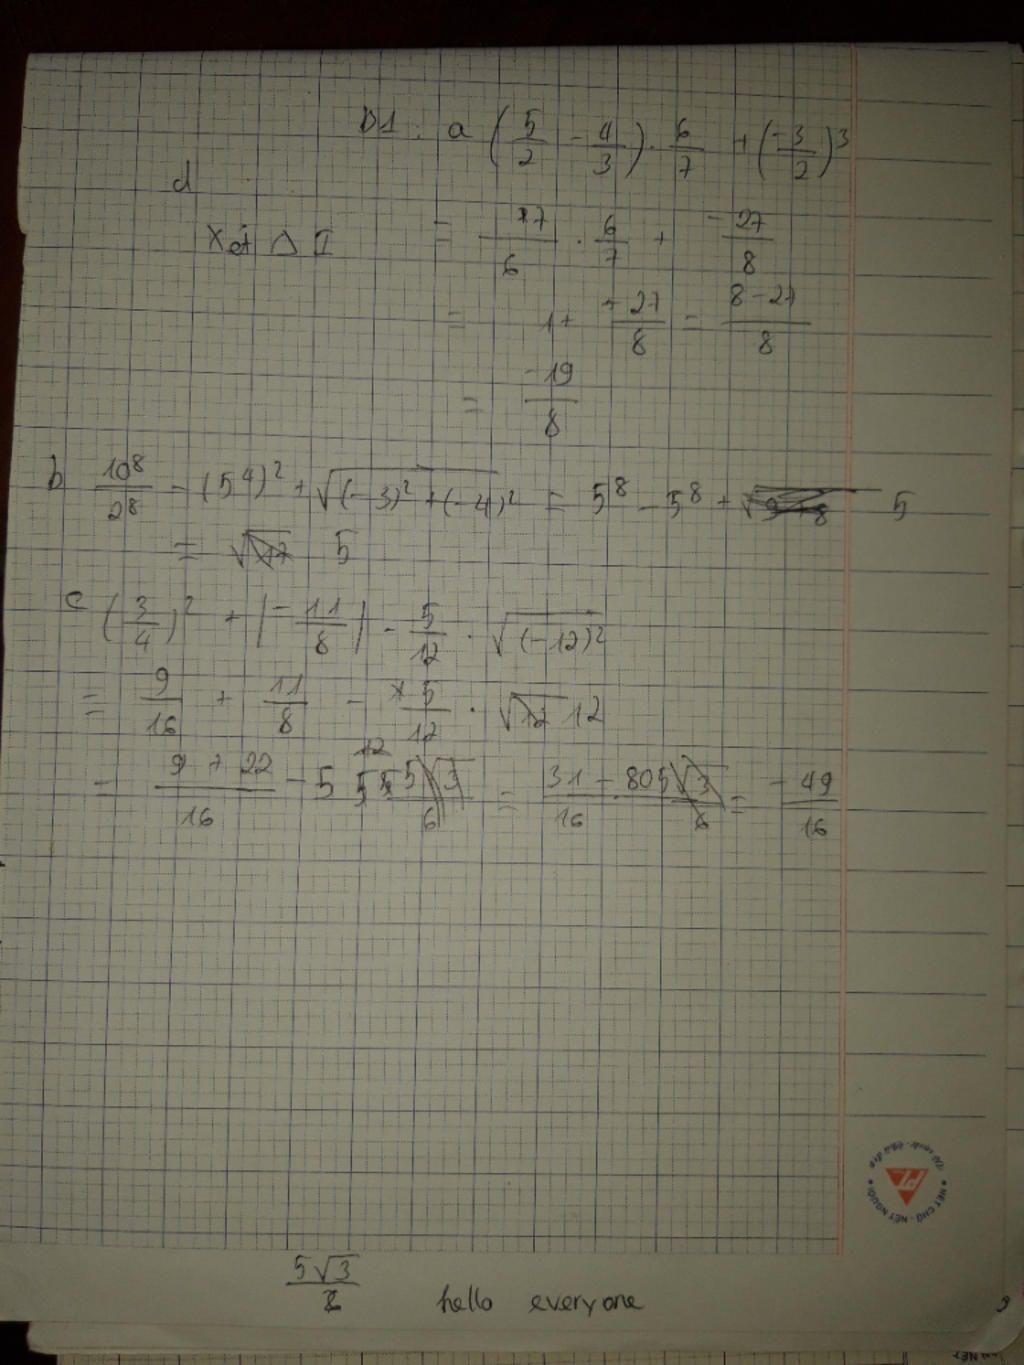 B1. a (5/2 - 4/3) . 6/7 + (-3/2)^3
d
Xét Δ I
= 7/6 . 6/7 + -27/8
= 1 + -27/8 = 8-27/8
= -19/8
b 10^8/2^8 - (5^4)^2 + √(-3)^2+(-4)^2 = 5^8 - 5^8 + 5
= 5
c (3/4)^2 + |-11/8| - 5/12 . √(-12)^2
= 9/16 + 11/8 - 5/12 . 12
= 9+22/16 - 5 = 31-80/16 = -49/16
NÉT CHỮ - NÉT NGƯỜI
5√3/2
hello everyone